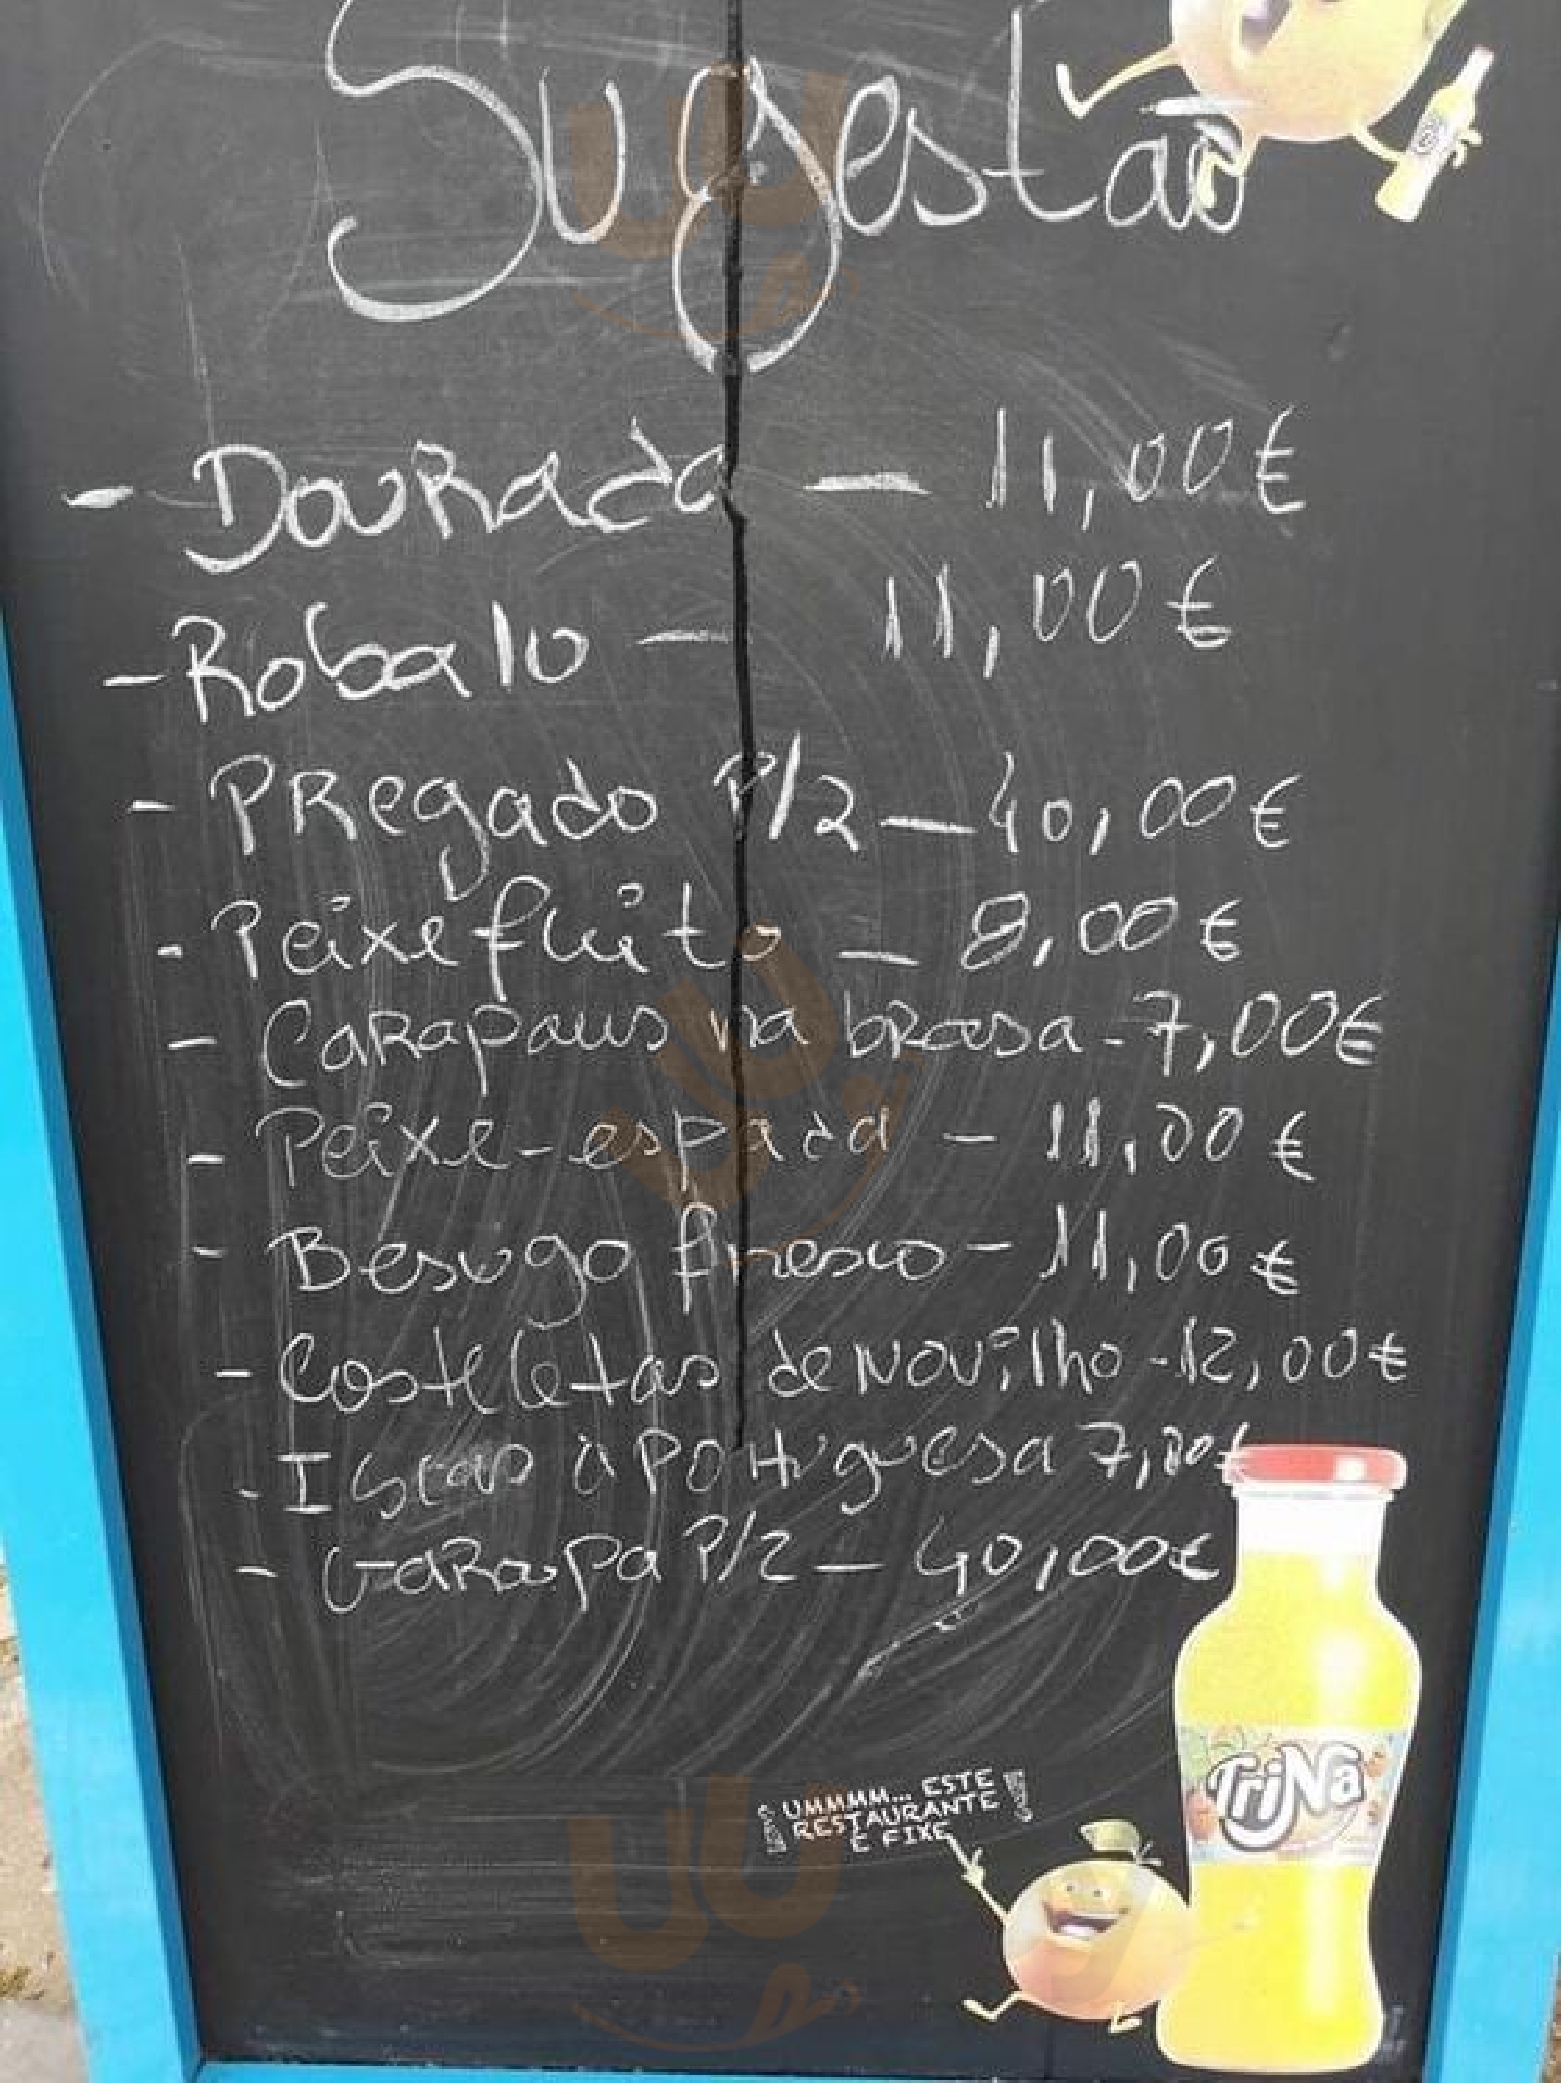 Sugestão
- Dourada — 11,00€
- Robalo — 11,00€
- PRegado P/2 — 40,00€
- Peixe frito — 8,00€
- CaRapaus na brasa - 7,00€
- Peixe-espada - 11,00€
- Besugo fresco - 11,00€
- Costeletas de Novilho - 12,00€
- Iscas à Portuguesa 7,00€
- Garoupa P/2 — 40,00€
UMMMM... ESTE
RESTAURANTE
É FIXE
TriNa